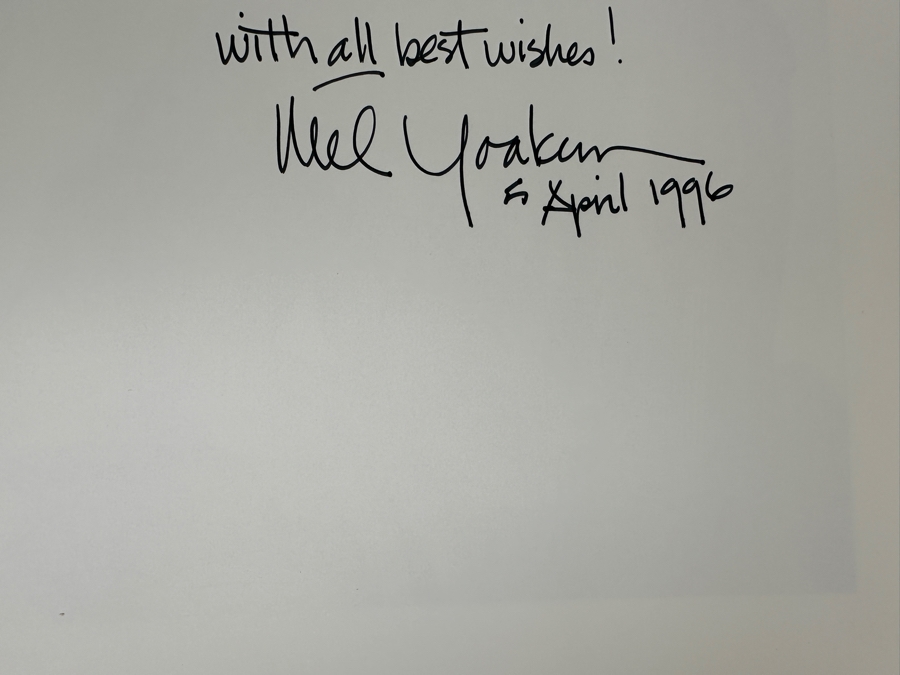 with all best wishes!
Mel Yoakum
5 April 1996